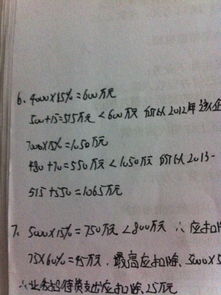 6. 4000×15%=600万元
500+15=515万元<600万元 所以2012年
7000×15%=1050万元
480+70=550万元<1050万元 所以2013
515+550=1065万元
7. 5000×15%=750万元<800万元 ∴应扣
75×60%=45万元. 最高应扣除 5000×5
∴业务招待费支出应扣除25万元